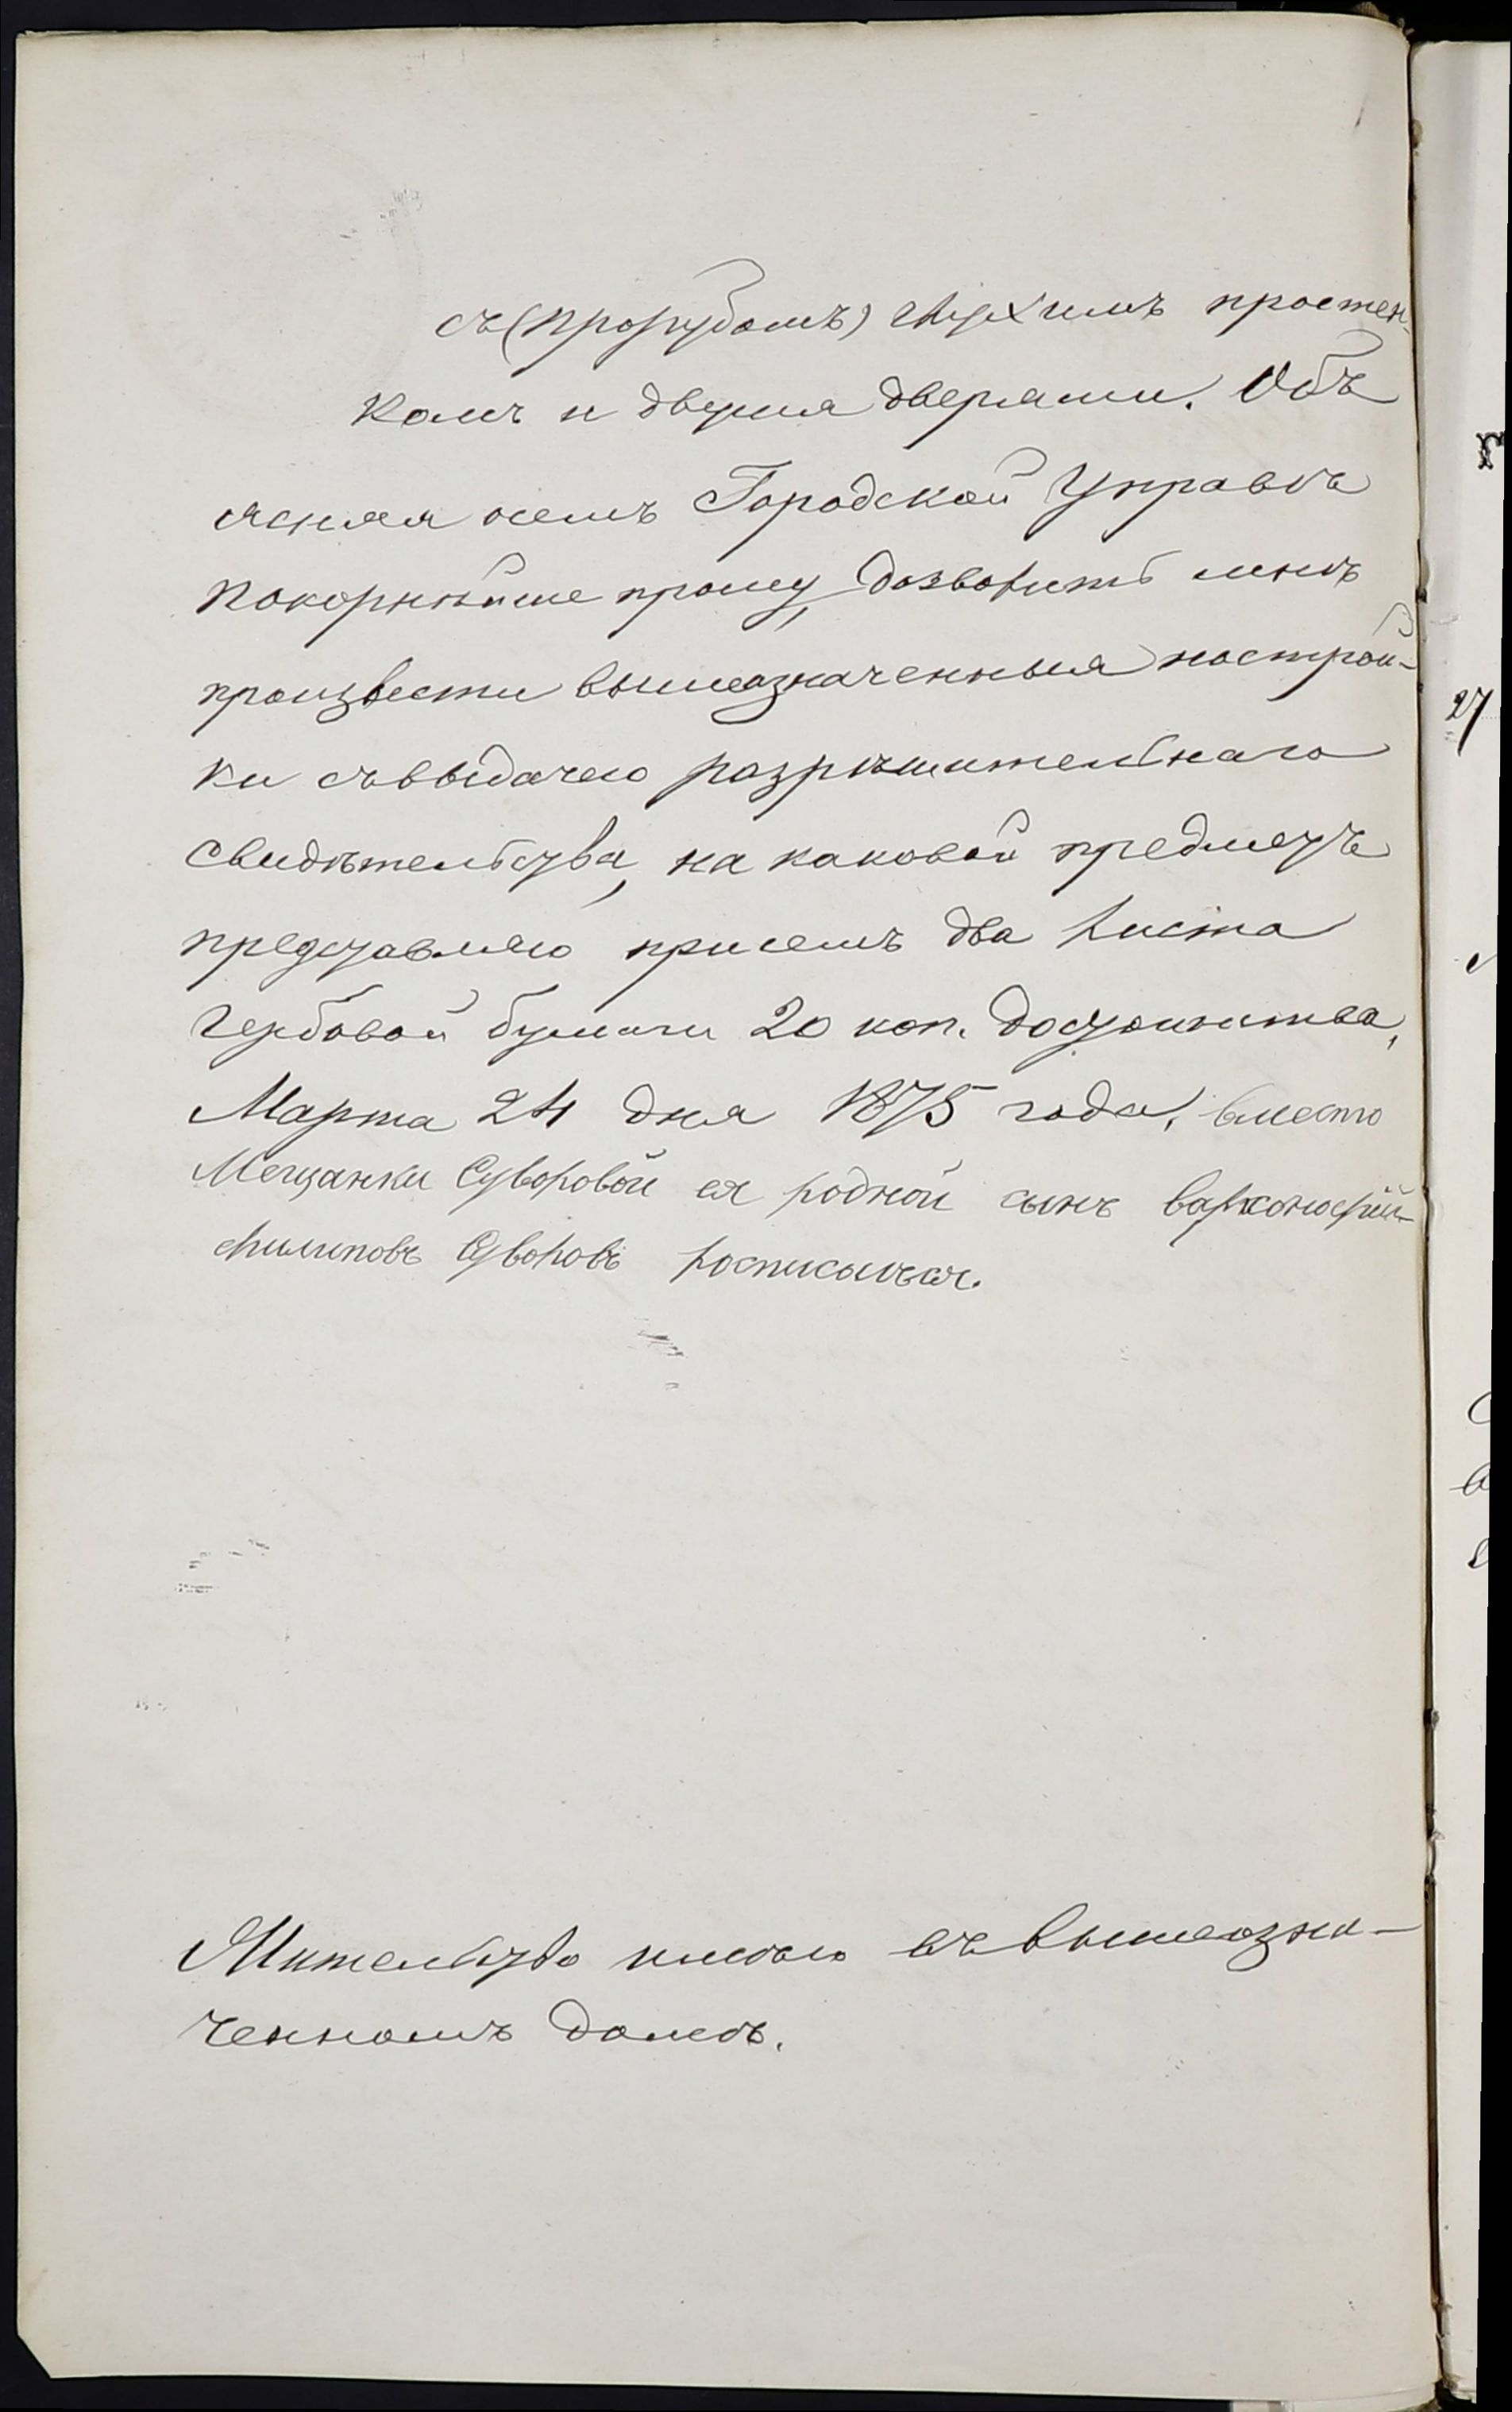 съ (прорубомъ) глухимъ простен-
комъ и двумя дверями. Объ
ясняя осемъ Городской Управѣ
покорнѣйше прошу, дозволить мнѣ
произвести вышеозначенныя построй-
ки съ выдачею разрѣшительнаго
свидѣтельства, на каковой предметъ
представляю присемъ два листа
гербовой бумаги 20 коп. достоинства,
Марта 24 дня 1875 года, вместо
Мещанки Суворовой ея родной сынъ
Филиповъ Суворовъ росписался.
Жительство имѣю въ вышеозна-
ченномъ домѣ.
27